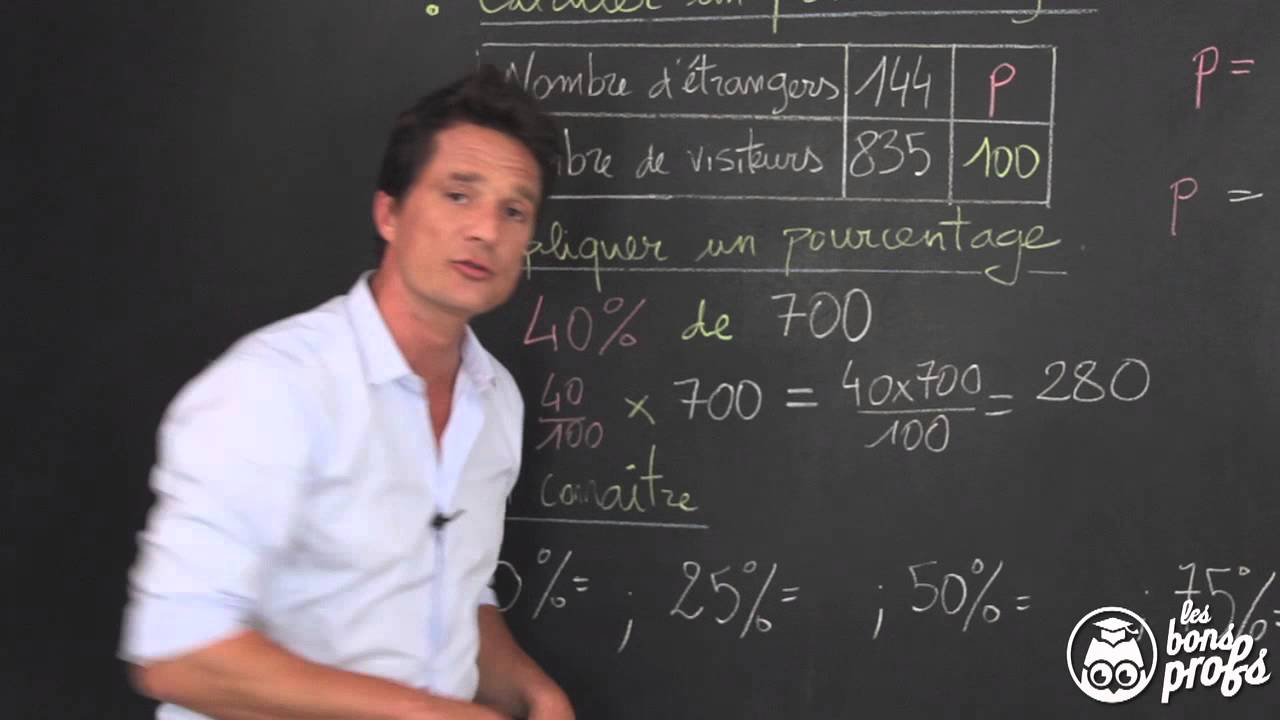 un
Nombre d'étrangers 144 P
de visiteurs 835 100
P =
P =
un pourcentage.
40% de 700
40/100 × 700 = 40×700/100 = 280
connaître
0%= ; 25%= ; 50%= ; 75%=
les
bons
profs